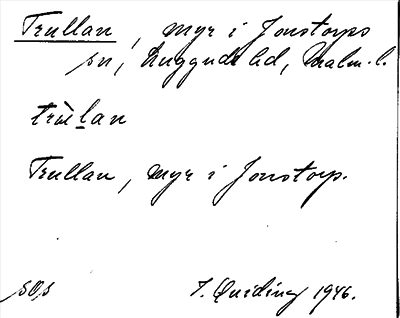 Trullan, myr i Jonstorps
sn, Luggude hd, Malm. l.
trùlan
Trullan, myr i Jonstorp.
sOs J. Quiding 1946.